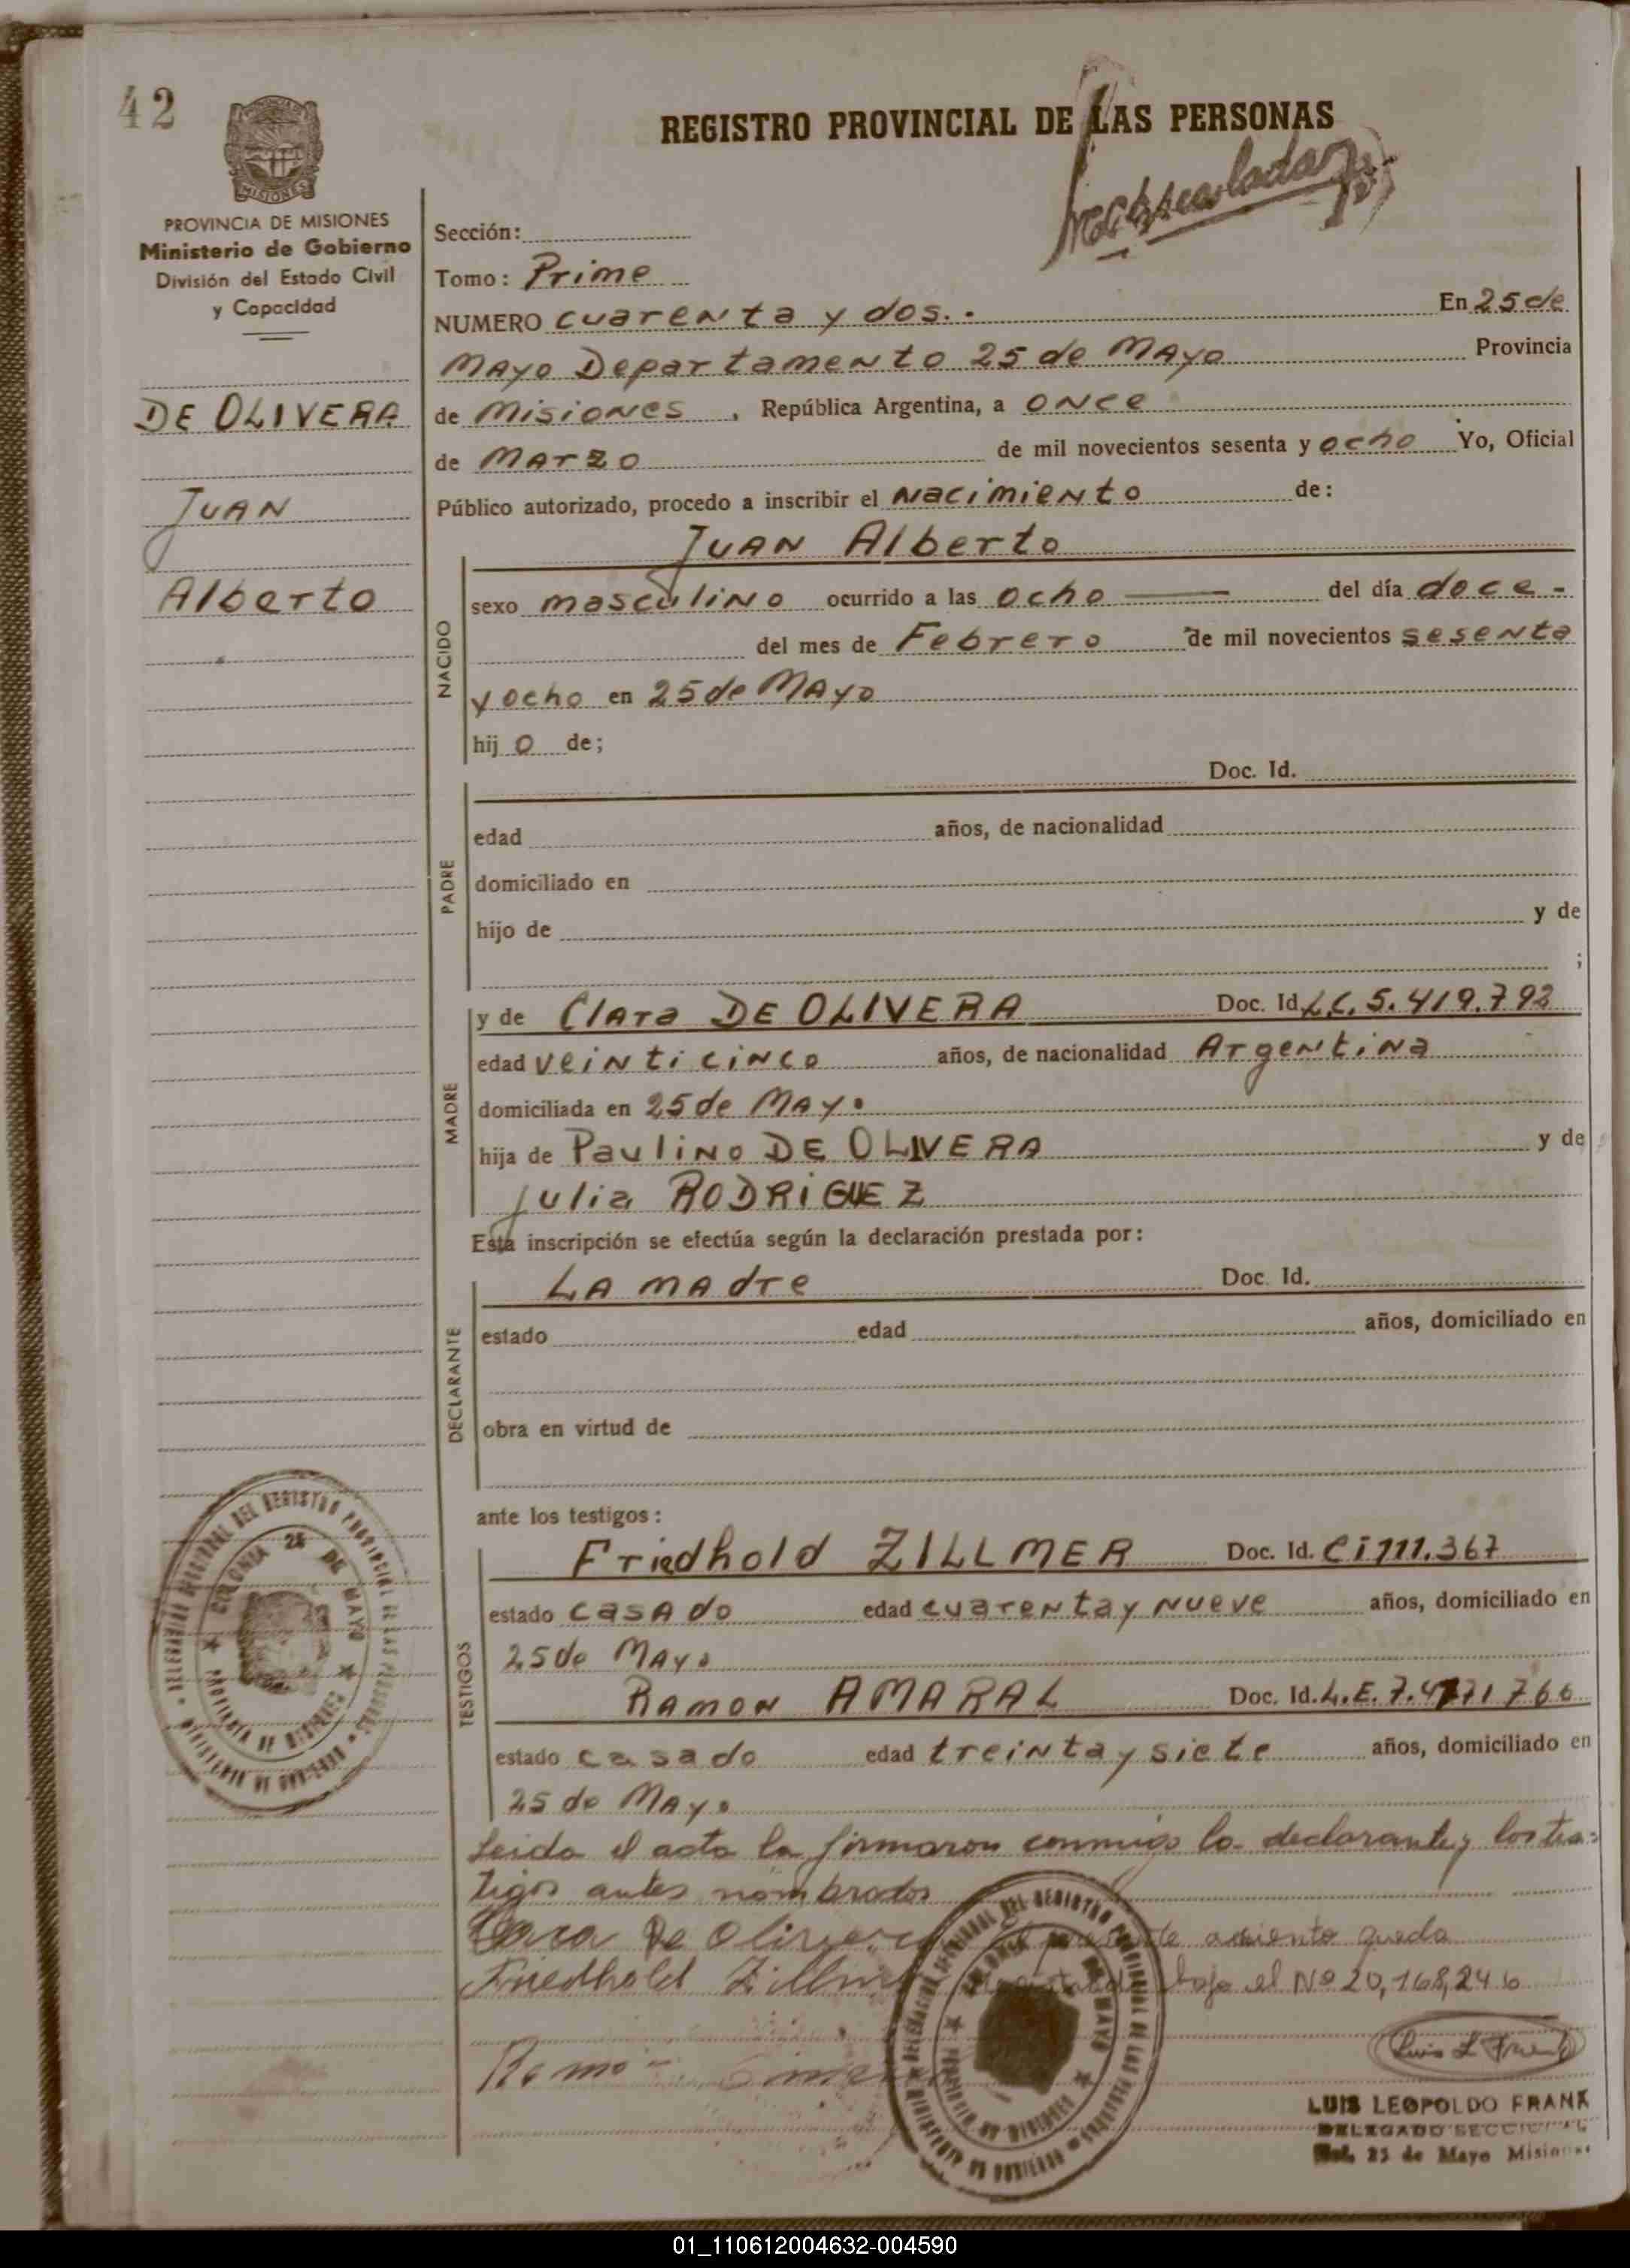 42
REGISTRO PROVINCIAL DE LAS PERSONAS
MISIONES
PROVINCIA DE MISIONES
Ministerio de Gobierno
División del Estado Civil
y Capacidad
DE OLIVERA
JUAN
Alberto
Sección:
Tomo: Prime
NUMERO cuarenta y dos.. En 25 de
Mayo Departamento 25 de Mayo Provincia
de Misiones, República Argentina, a once
de Marzo de mil novecientos sesenta y ocho Yo, Oficial
Público autorizado, procedo a inscribir el Nacimiento de:
NACIDO
Juan Alberto
sexo masculino ocurrido a las ocho — del día doce -
del mes de Febrero de mil novecientos sesenta
y ocho en 25 de Mayo
hij o de;
PADRE
Doc. Id.
edad años, de nacionalidad
domiciliado en
hijo de y de
;
MADRE
y de Clara DE OLIVERA Doc. Id. L.C. 5.419.792
edad veinticinco años, de nacionalidad Argentina
domiciliada en 25 de Mayo
hija de Paulino DE OLIVERA y de
Julia RODRIGUEZ
Esta inscripción se efectúa según la declaración prestada por:
DECLARANTE
La madre Doc. Id.
estado edad años, domiciliado en
obra en virtud de
ante los testigos:
TESTIGOS
Friedhold ZILLMER Doc. Id. Ci 111.367
estado casado edad cuarenta y nueve años, domiciliado en
25 de Mayo
Ramon AMARAL Doc. Id. L.E. 7.4 71 766
estado casado edad treinta y siete años, domiciliado en
25 de Mayo
Leida el acta la firmaron conmigo la declarante y los tes-
tigos antes nombrados
Clara De Olivera presente asiento queda
Friedhold Zillmer bajo el Nº 20,168,246
Ramo
Luis L Frank
LUIS LEOPOLDO FRANK
DELEGADO SECCIONAL
Col. 25 de Mayo Misiones
DELEGACION SECCIONAL DEL REGISTRO PROVINCIAL DE LAS PERSONAS
MINISTERIO DE GOBIERNO
COLONIA 25 DE MAYO
PROVINCIA DE MISIONES
01_110612004632-004590